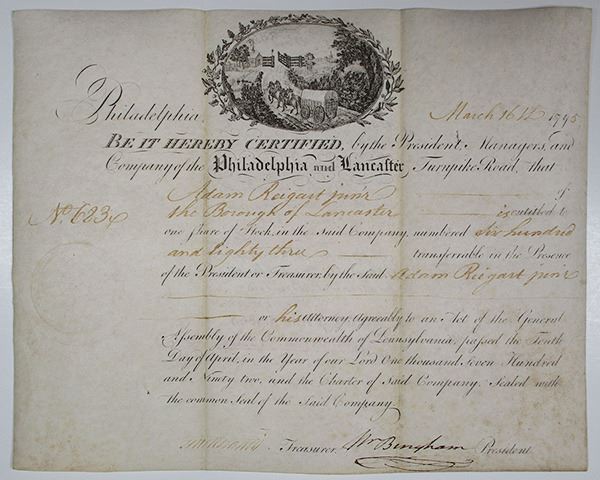 Philadelphia March 16th 1795
BE IT HEREBY CERTIFIED, by the President, Managers, and
Company of the Philadelphia and Lancaster Turnpike Road, that
Adam Reigart junr of
No. 683 the Borough of Lancaster is entitled to
one Share of Stock, in the Said Company, numbered Six hundred
and Eighty three transferrable in the Presence
of the President or Treasurer, by the Said Adam Reigart junr
or his Attorney Agreeably to an Act of the General
Assembly of the Commonwealth of Pennsylvania, passed the Tenth
Day of April, in the Year of our Lord One thousand Seven Hundred
and Ninety two, and the Charter of Said Company. Sealed with
the common Seal of the Said Company.
Treasurer. Wm Bingham President